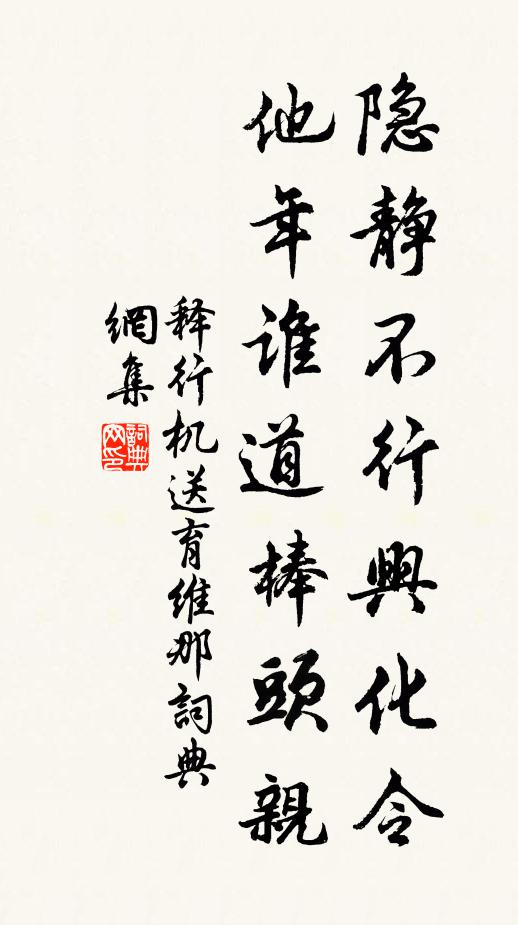 隐静不行興化令
他年谁道棒頭親
释行机送育维那詞典
網集
詞典
网印